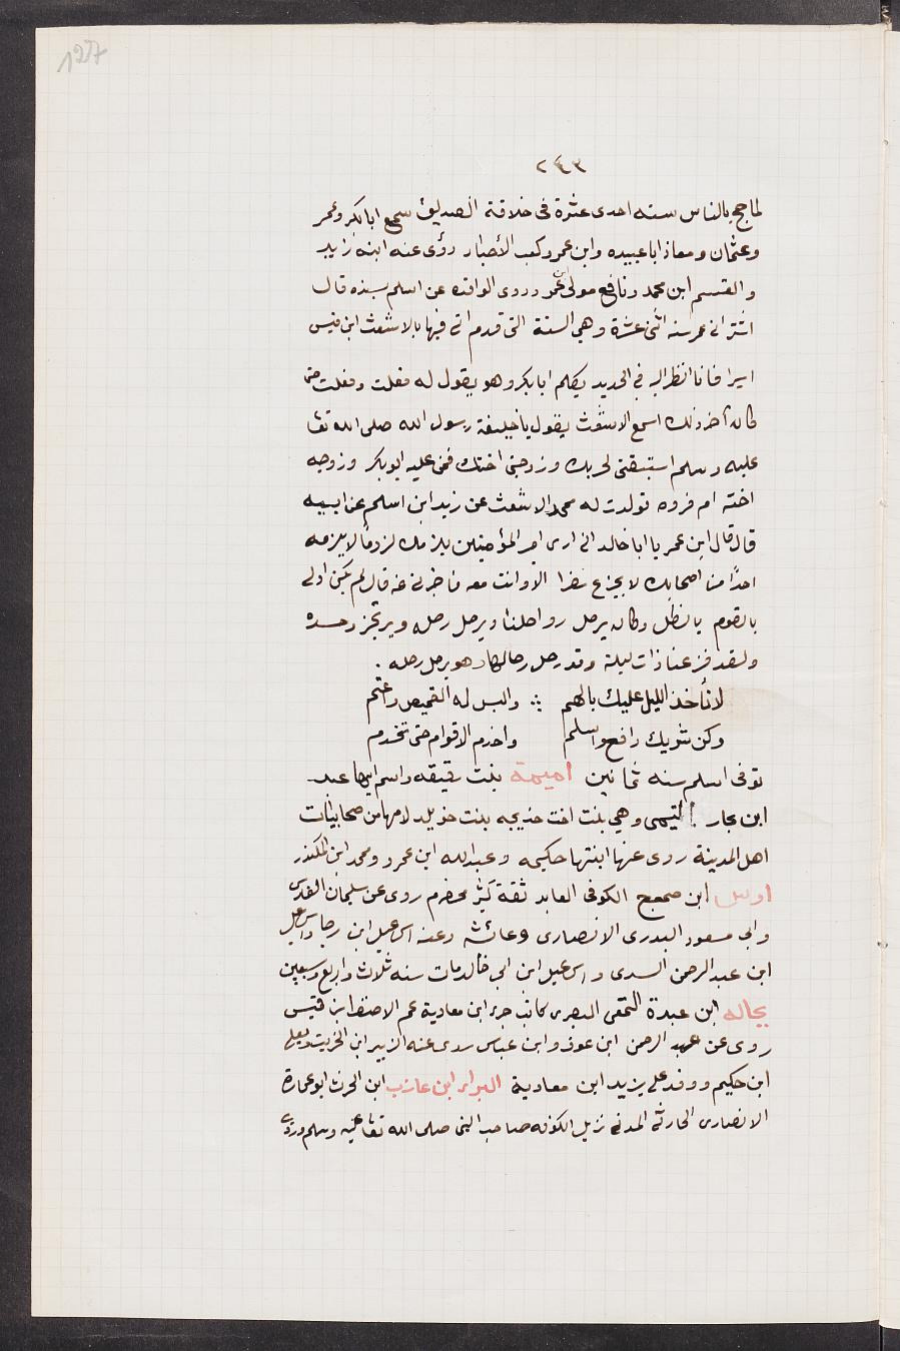 1237
٢٤٣
لما حج بالناس سنه احدى عشرة فى خلافة الصديق سمع ابا بكر وعمر
وعثمان ومعاذ ابا عبيده وابن عمر وكعب الأحبار روى عنه ابنه زيد
والقسم ابن محمد ونافع مولى ابن عمر وروى الواقدى عن اسلم بسنده قال
اشترانى عمر سنه اثنى عشرة وهي السنة التى قدم فيها بالاشعث ابن قيس
اسيرا فانا انظر اليه فى الحديد يكلم ابا بكر وهو يقول له فعلت وفعلت حتى
كان آخر ذلك اسمع الاشعث يقول يا خليفة رسول الله صلى الله تعا
عليه وسلم استبقنى لحربك وزوجنى اختك فمن عليه ابو بكر وزوجه
اخته ام فروه فولدت له محمد الاشعث عن زيد ابن اسلم عن ابيه
قال قال ابن عمر يا ابا خالد انى ارى امير المؤمنين يلزمك لزوما لا يلزمه
احدًا من اصحابك لا يخرج سفرا الا وانت معه فاخبرنى عنه قال لم يكن اولى
بالقوم بالظل وكان يرحل رواحلنا ويرحل رحله ويرتجز وحده
ولقد فزعنا ذات ليلة وقد رحل رحالنا وهو يرحل رحله .
لا تأخذ الليل عليك بالهم ؞ والبس له القميص واعتم
وكن شريك رافع واسلم واخدم الاقوام حتى تخدم
توفى اسلم سنه ثمانين اميمة بنت رقيقه واسم ابيها عبد
ابن بجار التيمى وهي بنت اخت خديجه بنت خويلد لامها من صحابيات
اهل المدينة روى عنها ابنتها حكيمه وعبد الله ابن عمرو ومحمد ابن المنكدر
اوس ابن ضمعج الكوفى العابد ثقة كبير مخضرم روى عن سلمان الفارسى
وابى مسعود البدرى الانصارى وعائشه وعنه اسمعيل ابن رجا واسمعيل
ابن عبد الرحمن السدى واسمعيل ابن ابى خالد مات سنه ثلاث واربع وسبعين
بجاله ابن عبدة التميمى البصرى كاتب جزء ابن معاوية عم الاحنف ابن قيس
روى عن عبد الرحمن ابن عوف وابن عباس روى عنه الزبير ابن الخريت ويعلى
ابن حكيم ووفد على يزيد ابن معاوية البراء ابن عازب ابن الحرث ابو عمارة
الانصارى الحارثى المدنى نزيل الكوفه صاحب النبى صلى الله تعا عليه وسلم